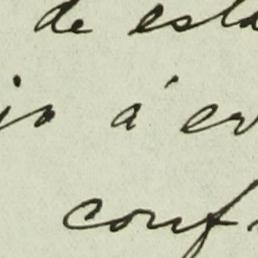 de esta
jo á en
conf